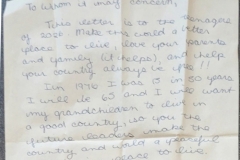 To whom it may concern,
This letter is to the teenagers
of 2026 Make this world a better
place to live, love your parents
and family (it helps), and help
your country always & life!!
In 1976 I was 15 in 50 years
I will be 65 and I will want
my grandchildren to live in
a good country, so you the
future leaders make the
country and world a peaceful
place to live.